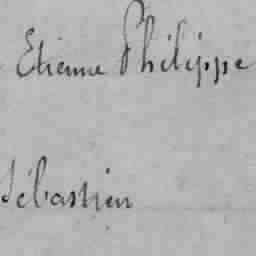 Etienne Philippe
Sébastien